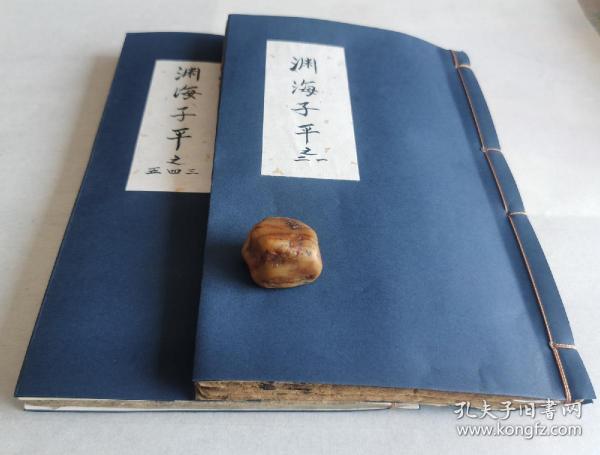 渊海子平之
三四五
渊海子平之
一二
孔夫子旧书网
www.kongfz.com